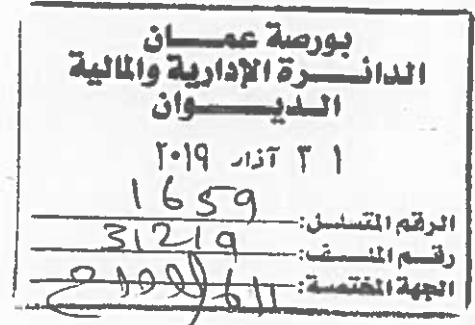 بورصة عمــان
الدائــرة الإدارية والمالية
الـديــــوان
٣١ آذار ٢٠١٩
الرقم المتسلسل: 1659
رقم الملــف: 31219
الجهة المختصة: